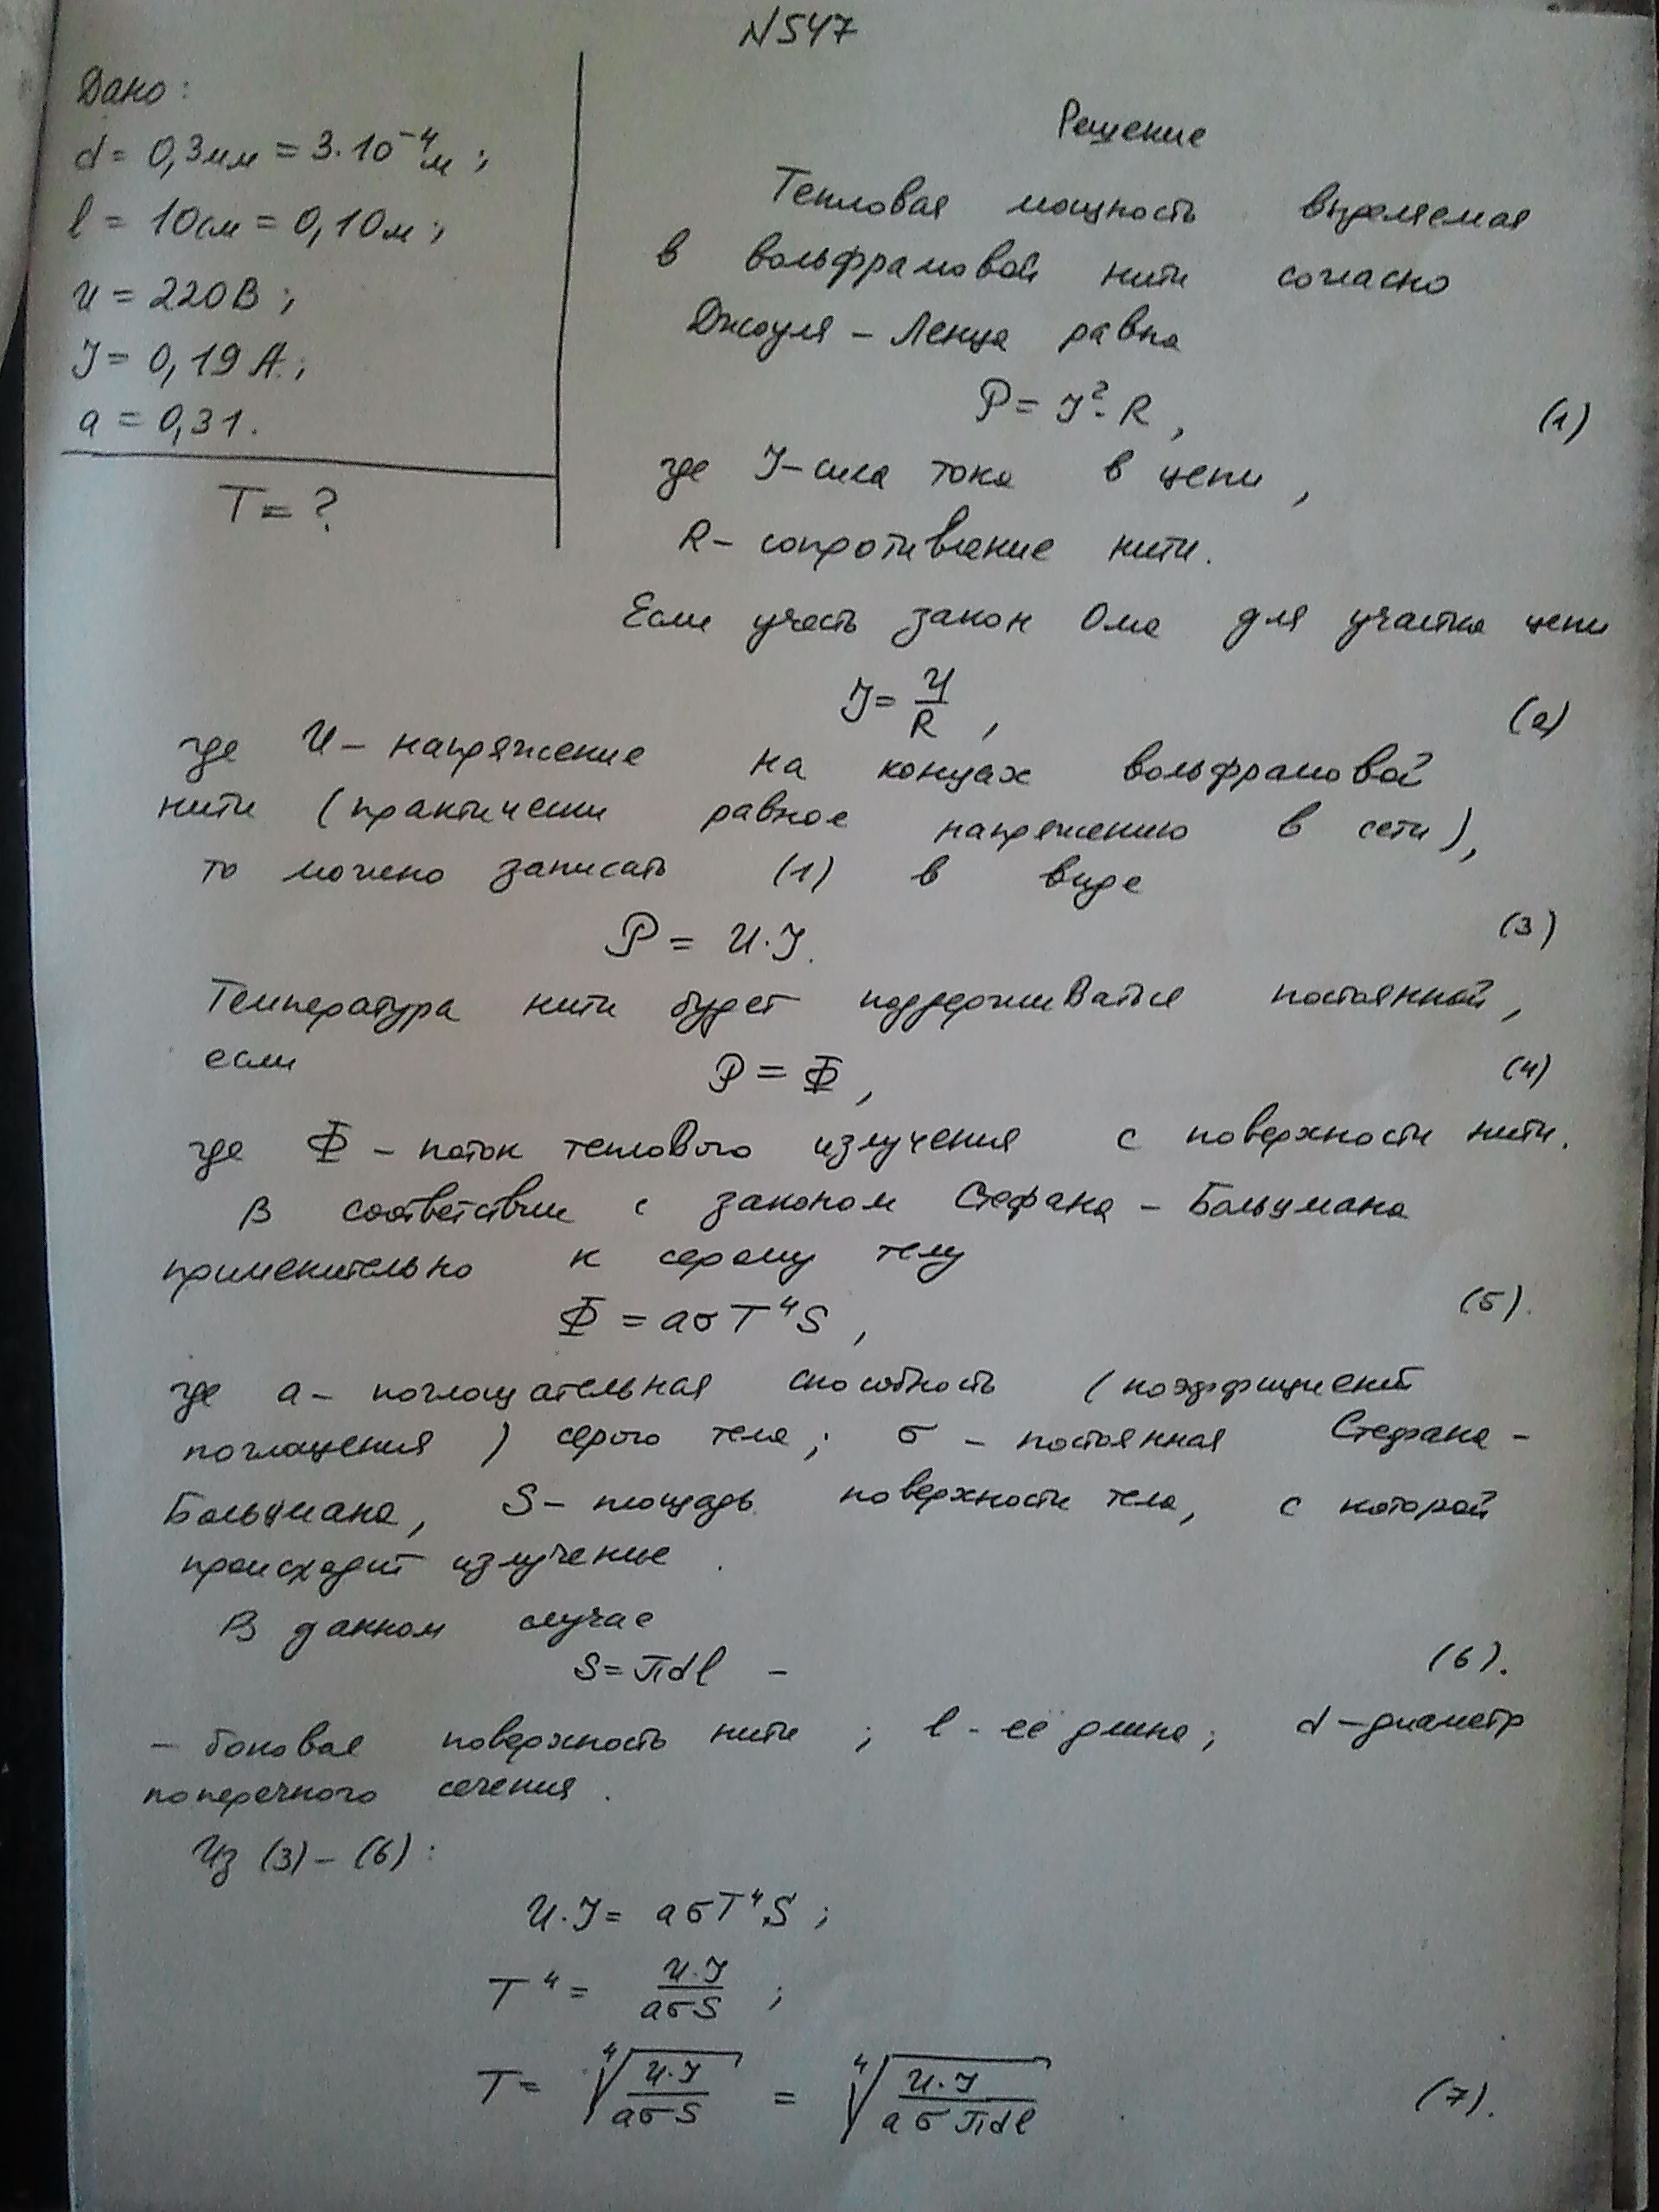 N547
Дано:
d = 0,3мм = 3·10⁻⁴м;
l = 10см = 0,10м;
U = 220В;
J = 0,19А;
a = 0,31.
T = ?
Решение
Тепловая мощность выделяемая
в вольфрамовой нити согласно
Джоуля – Ленца равна
P = J²·R, (1)
где J – сила тока в цепи,
R – сопротивление нити.
Если учесть закон Ома для участка цепи
J = U/R, (2)
где U – напряжение на концах вольфрамовой
нити (практически равное напряжению в сети),
то можно записать (1) в виде
P = U·J. (3)
Температура нити будет поддерживаться постоянной,
если P = Ф, (4)
где Ф – поток теплового излучения с поверхности нити.
В соответствии с законом Стефана – Больцмана
применительно к серому телу
Ф = aσT⁴S, (5).
где a – поглощательная способность (коэффициент
поглощения) серого тела; σ – постоянная Стефана –
Больцмана, S – площадь поверхности тела, с которой
происходит излучение.
В данном случае
S = πdl – (6).
– боковая поверхность нити; l - её длина; d – диаметр
поперечного сечения.
Из (3) – (6):
U·J = aσT⁴S;
T⁴ = U·J/aσS;
T = ⁴√(U·J/aσS) = ⁴√(U·J/aσπdl) (7).